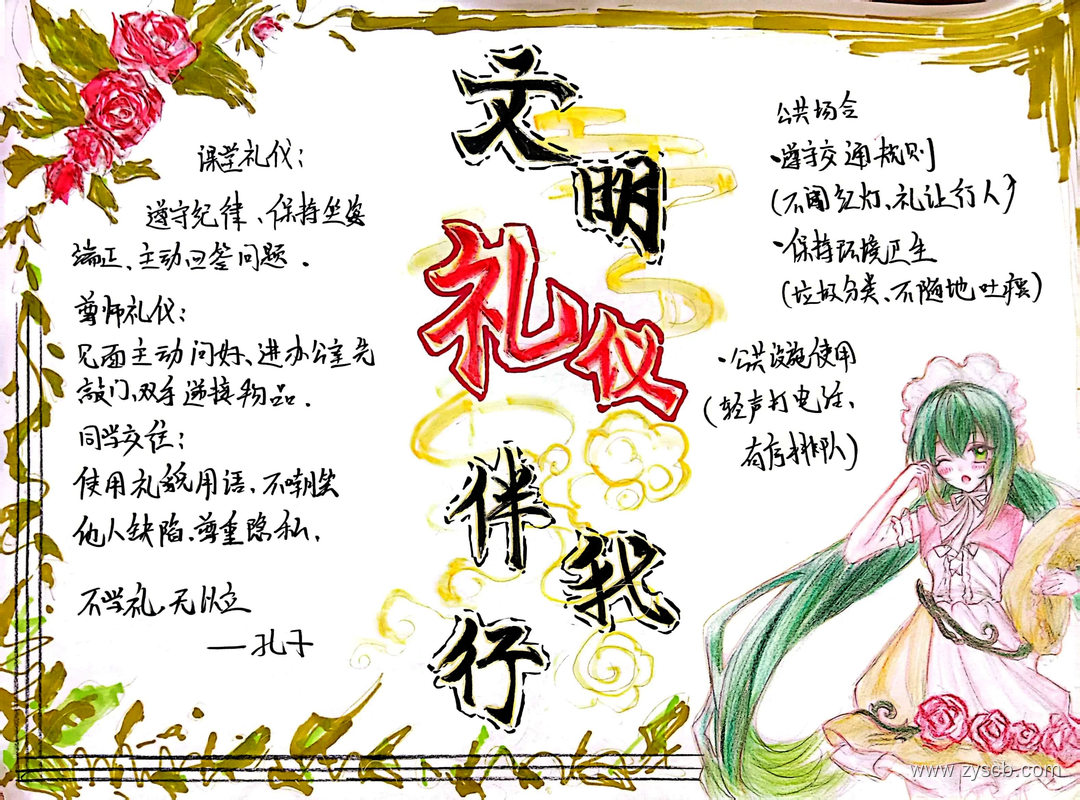 文明礼仪伴我行
课堂礼仪：
遵守纪律、保持坐姿
端正、主动回答问题．
尊师礼仪：
见面主动问好、进办公室先
敲门、双手递接物品．
同学交往：
使用礼貌用语、不嘲笑
他人缺陷、尊重隐私，
不学礼，无以立
——孔子
公共场合
·遵守交通规则
(不闯红灯、礼让行人)
·保持环境卫生
(垃圾分类、不随地吐痰)
·公共设施使用
(轻声打电话、
有序排队)
www.zyscb.com